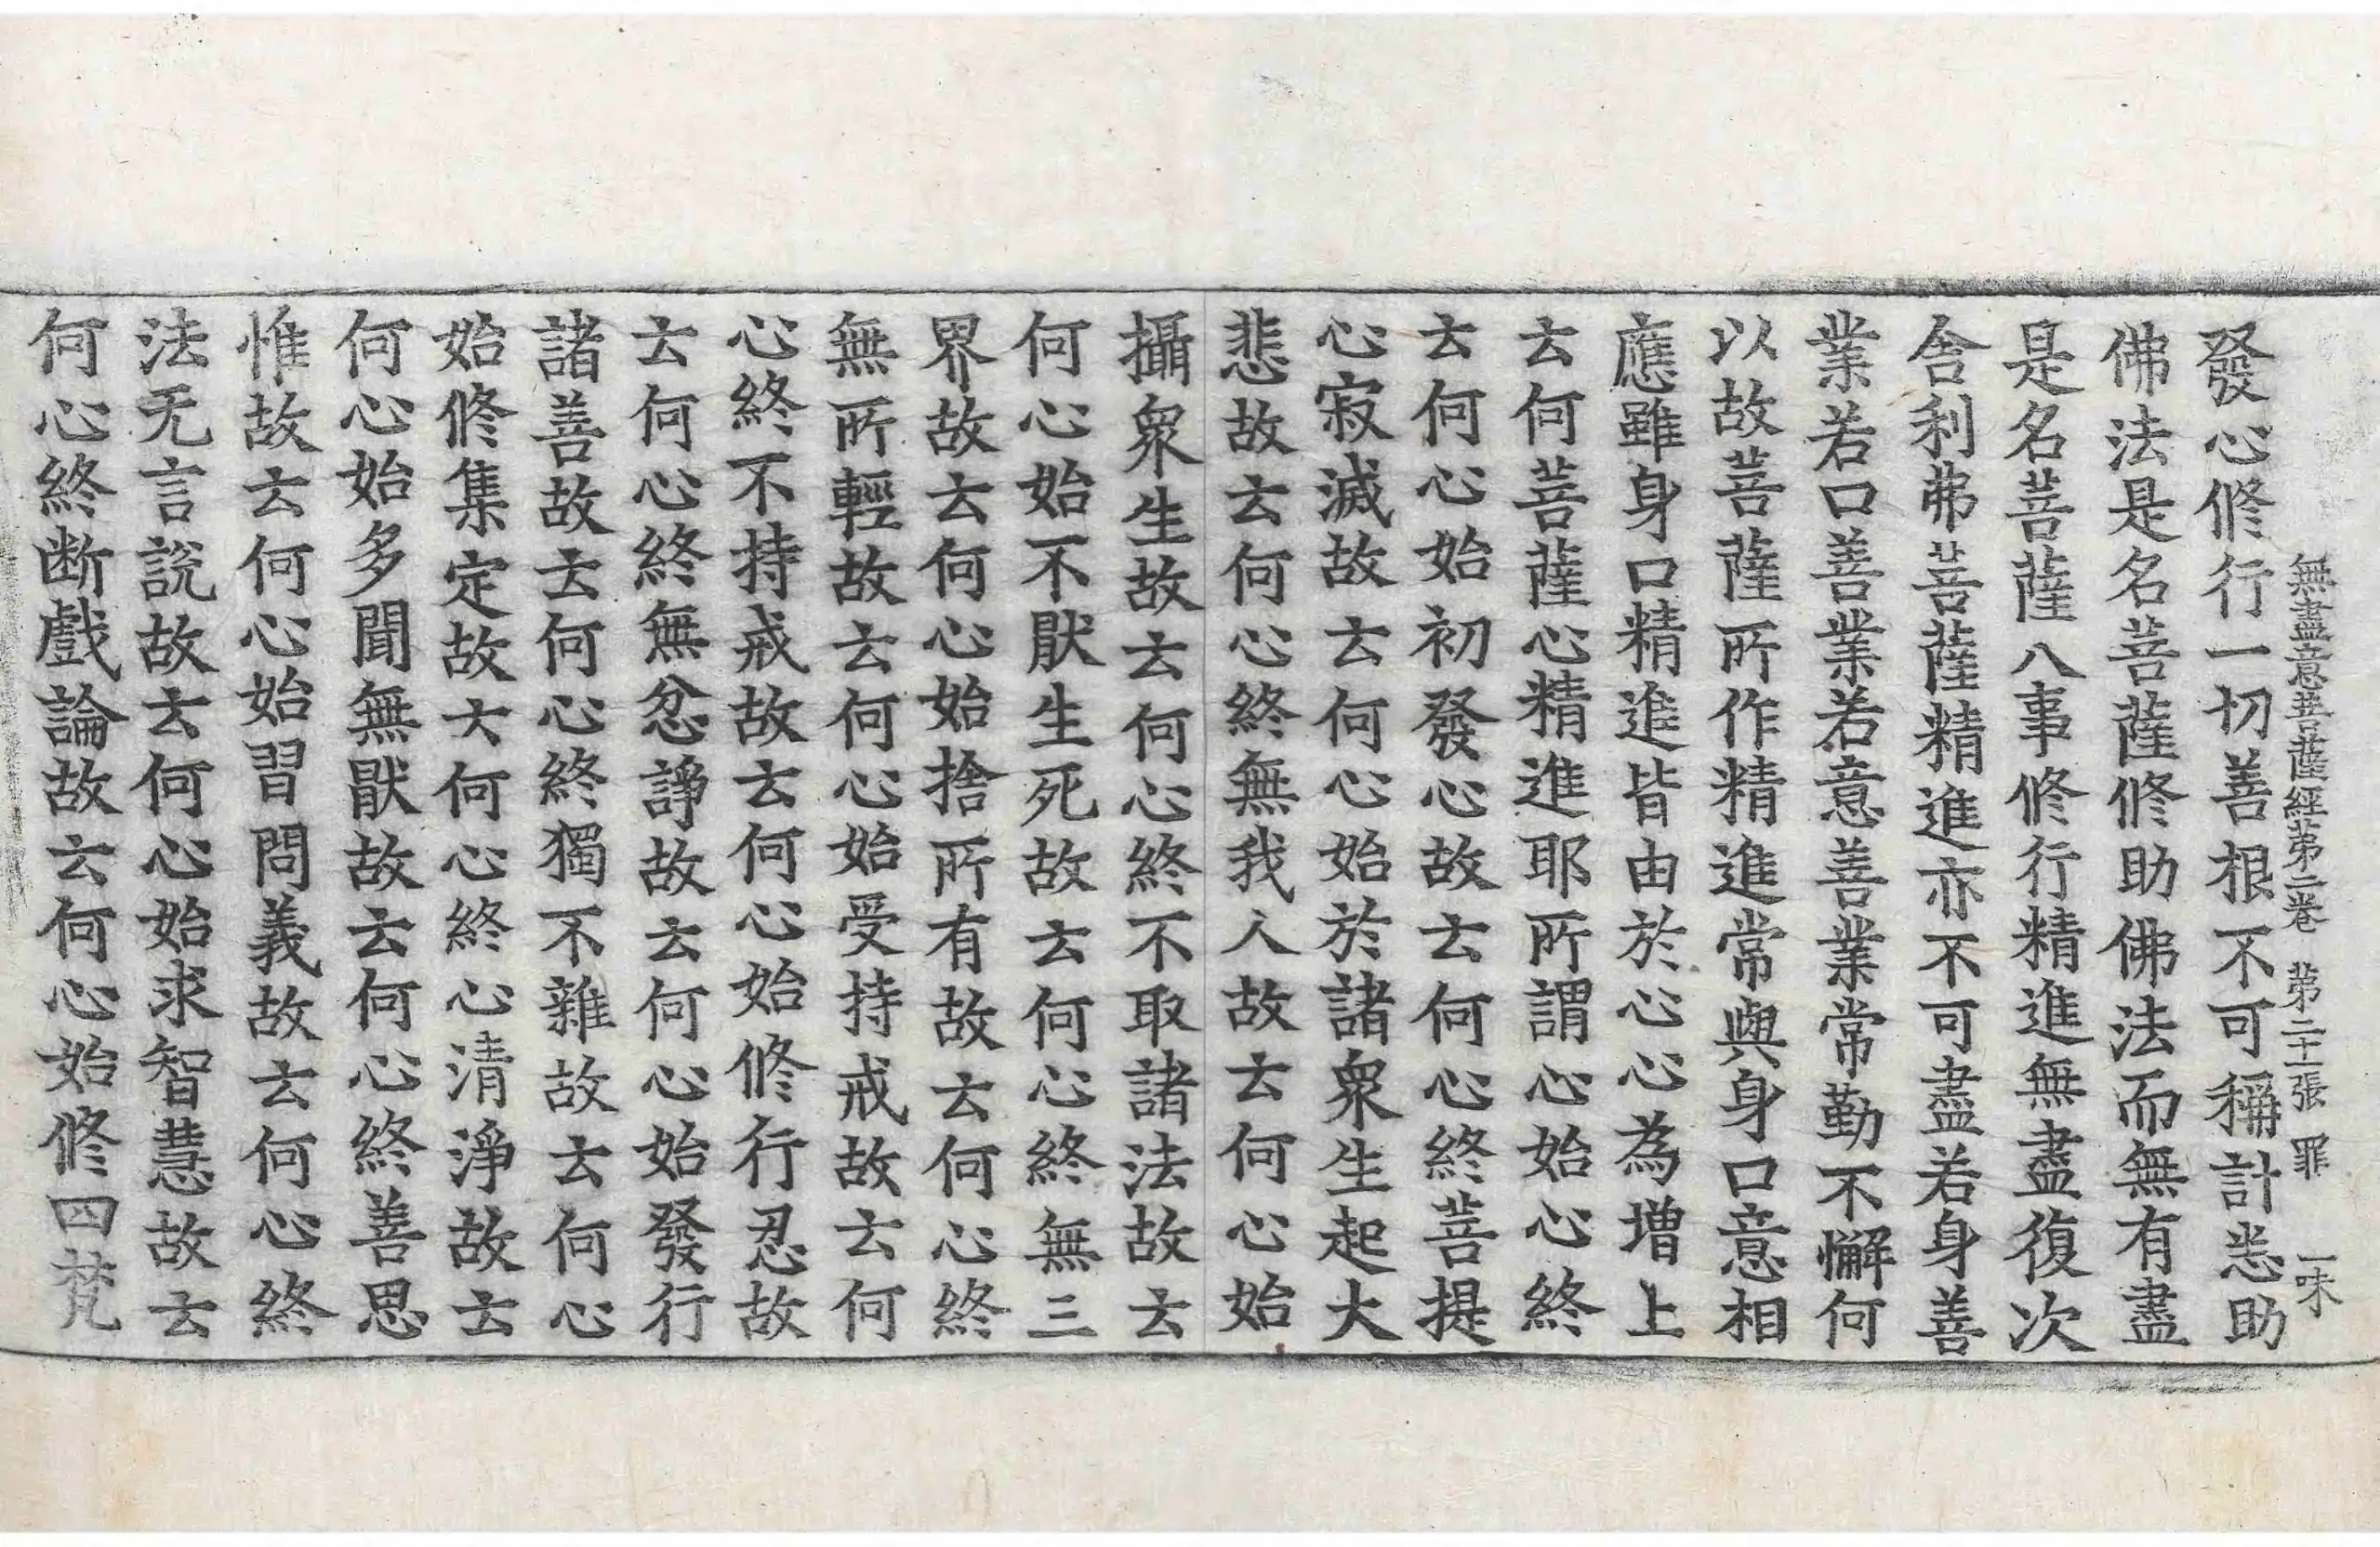 無盡意菩薩經第二卷 第二十一張 罪 一味
發心修行一切善根不可稱計悉助
佛法是名菩薩修助佛法而無有盡
是名菩薩八事修行精進無盡復次
舍利弗菩薩精進亦不可盡若身善
業若口善業若意善業常勤不懈何
以故菩薩所作精進常與身口意相
應雖身口精進皆由於心心為增上
云何菩薩心精進耶所謂心始心終
云何心始初發心故云何心終菩提
心寂滅故云何心始於諸衆生起大
悲故云何心終無我人故云何心始
攝衆生故云何心終不取諸法故云
何心始不猒生死故云何心終無三
界故云何心始捨所有故云何心終
無所輕故云何心始受持戒故云何
心終不持戒故云何心始修行忍故
云何心終無忿諍故云何心始發行
諸善故云何心終獨不雜故云何心
始修集定故大何心終心清淨故云
何心始多聞無猒故云何心終善思
惟故云何心始習問義故云何心終
法无言說故云何心始求智慧故云
何心終断戲論故云何心始修四梵